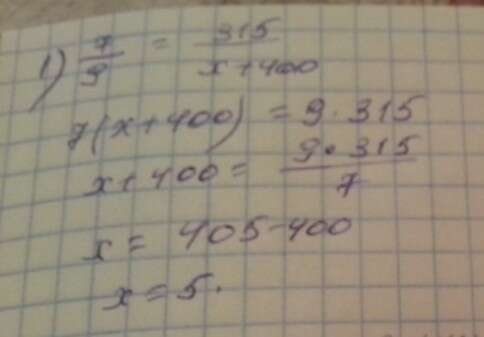 1) 7/9 = 315/(x+400)
7(x+400) = 9·315
x+400 = 9·315/7
x = 405-400
x = 5.